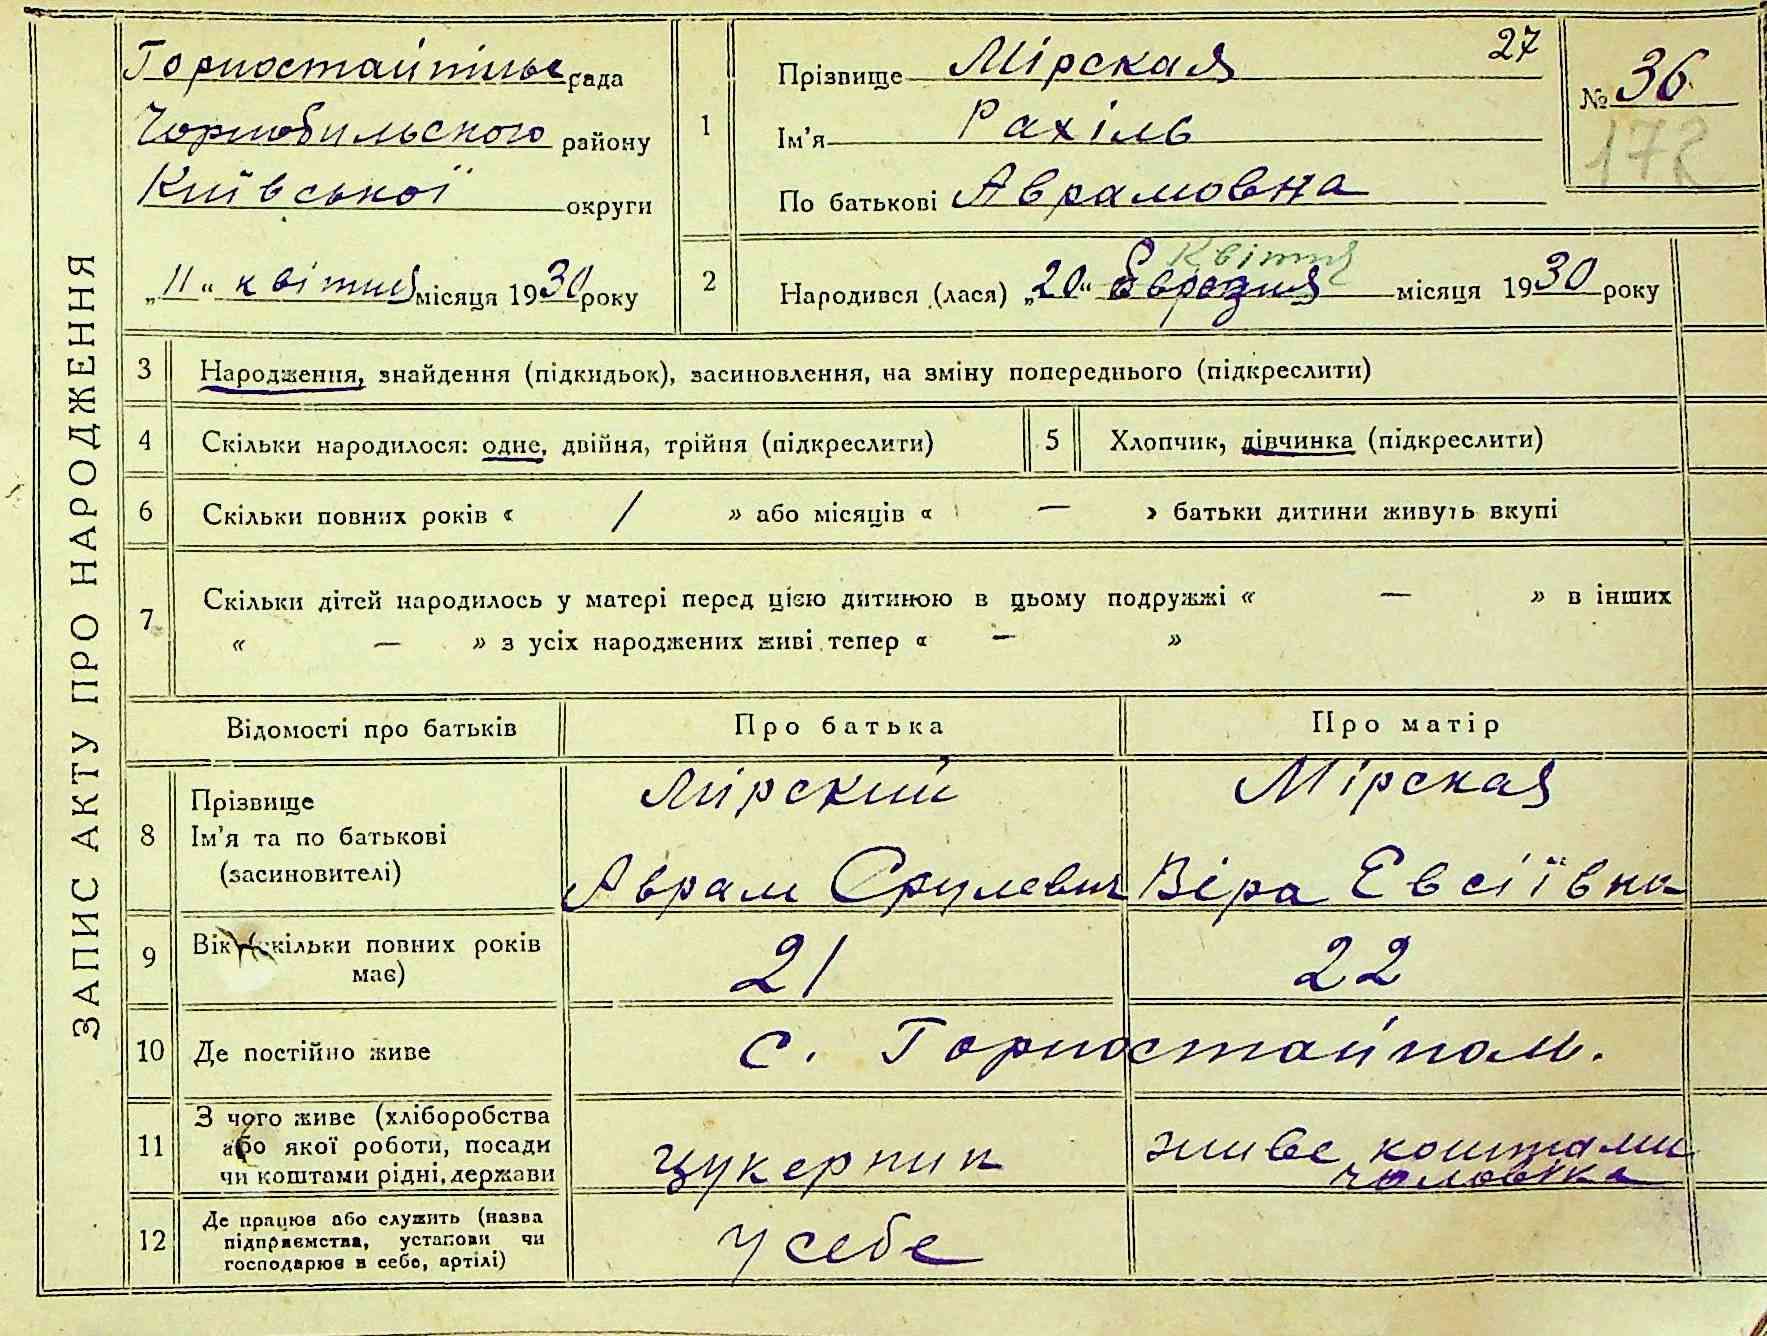 ЗАПИС АКТУ ПРО НАРОДЖЕННЯ
Горностайпільс рада
Чорнобильського району
Київської округи
„11“ квітня місяця 1930 року
1
Прізвище Мірская 27
Ім'я Рахіль
По батькові Аврамовна
№ 36
172
2
Квітня
Народився (лася) „20“ Березня місяця 1930 року
3 Народження, знайдення (підкидьок), засиновлення, на зміну попереднього (підкреслити)
4 Скільки народилося: одне, двійня, трійня (підкреслити)
5 Хлопчик, дівчинка (підкреслити)
6 Скільки повних років « / » або місяців « — » батьки дитини живуть вкупі
7 Скільки дітей народилось у матері перед цією дитиною в цьому подружжі « — » в інших
« — » з усіх народжених живі тепер « — »
Відомості про батьків Про батька Про матір
8 Прізвище
Ім'я та по батькові
(засиновителі)
Мірский
Аврам Срулевич
Мірская
Віра Евсіївна
9 Вік скільки повних років
має)
21 22
10 Де постійно живе с. Горностайпол.
11 З чого живе (хліборобства
або якої роботи, посади
чи коштами рідні, держави
цукерник
живе коштами
чоловіка
12 Де працює або служить (назва
підприємства, установи чи
господарює в себе, артілі)
у себе